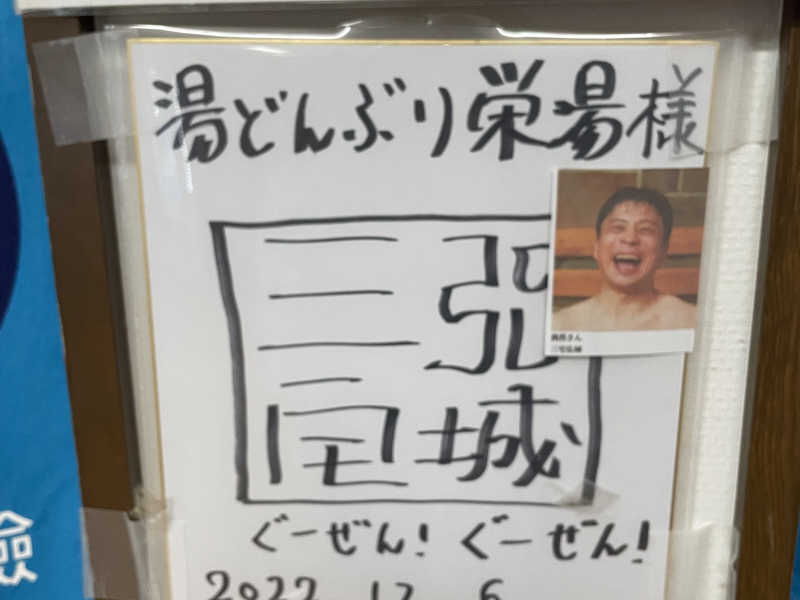 湯どんぶり栄湯様
三宅
弘城
三宅弘城
ぐーぜん！ぐーぜん！
2022 12 6